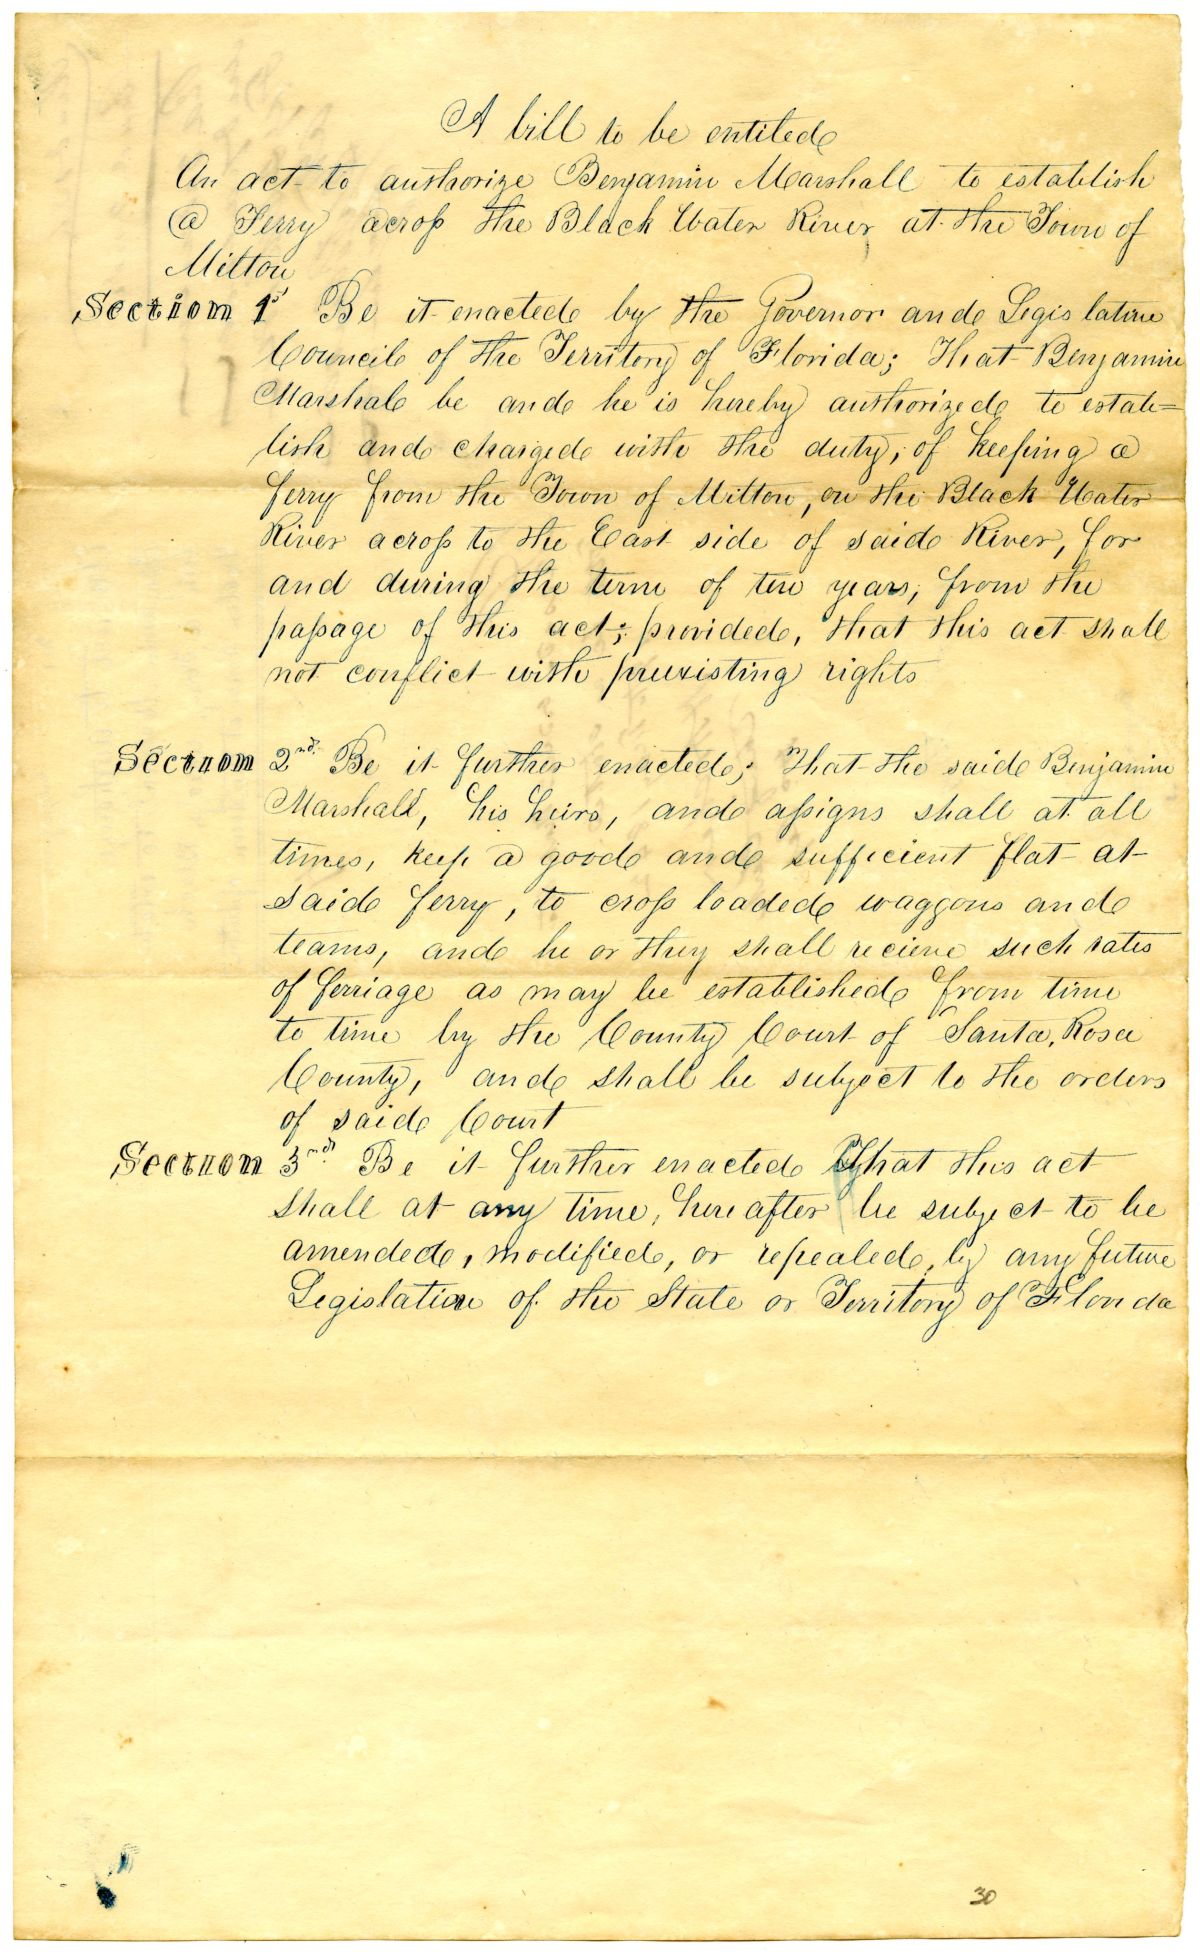 A bill to be entitled
An act to authorize Benjamin Marshall to establish
a Ferry across the Black Water River at the Town of
Milton
Section 1st Be it enacted by the Governor and Legislative
Council of the Territory of Florida; That Benjamin
Marshal be and he is hereby authorized to estab=
lish and charged with the duty, of keeping a
ferry from the Town of Milton, on the Black Water
River across to the East side of said River, for
and during the term of ten years, from the
passage of this act; provided, that this act shall
not conflict with preexisting rights
Section 2nd Be it further enacted; That the said Benjamin
Marshall, his heirs, and assigns shall at all
times, keep a good and sufficient flat at
said ferry, to cross loaded waggons and
teams, and he or they shall recieve such rates
of ferriage as may be established from time
to time by the County Court of Santa, Rosa
County, and shall be subject to the orders
of said Court
Section 3rd Be it further enacted That this act
shall at any time, hereafter be subject to be
amended, modified, or repealed, by any future
Legislation of the State or Territory of Florida
30